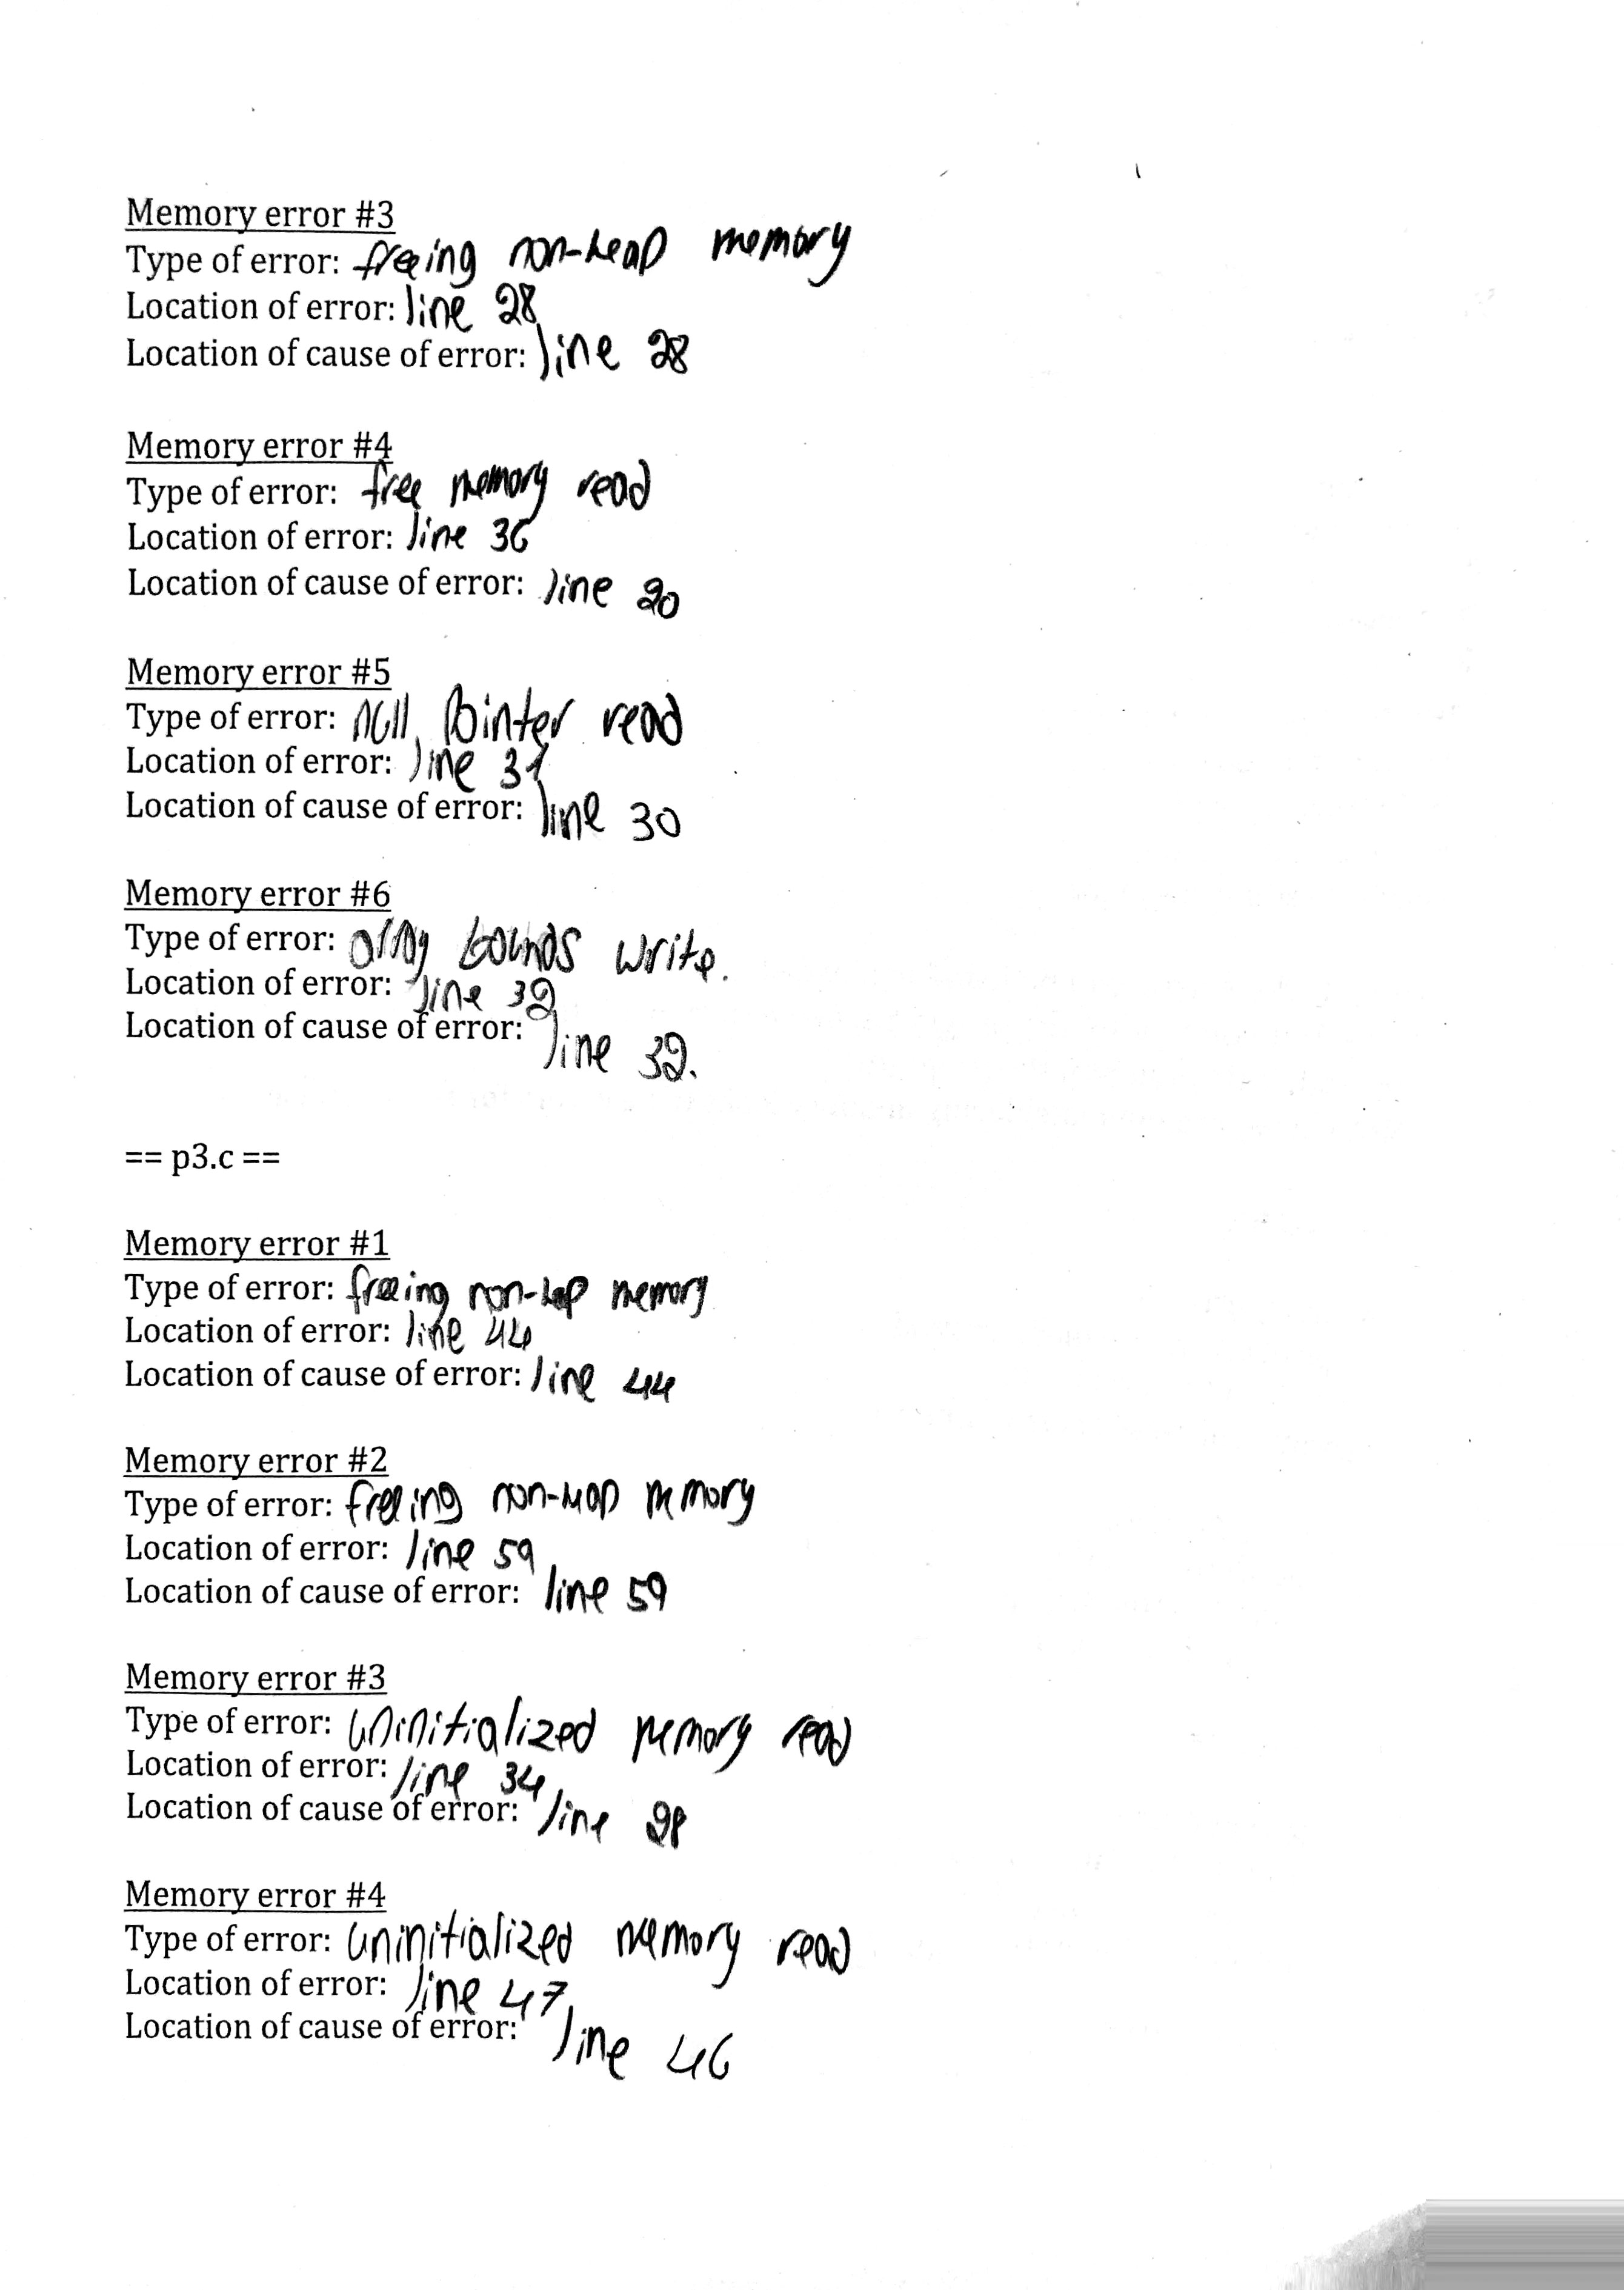 Memory error #3
Type of error: freeing non-heap memory
Location of error: line 28
Location of cause of error: line 28
Memory error #4
Type of error: free memory read
Location of error: line 36
Location of cause of error: line 20
Memory error #5
Type of error: null pointer read
Location of error: line 31
Location of cause of error: line 30
Memory error #6
Type of error: array bounds write.
Location of error: line 32
Location of cause of error: line 32.
== p3.c ==
Memory error #1
Type of error: freeing non-heap memory
Location of error: line 44
Location of cause of error: line 44
Memory error #2
Type of error: freeing non-heap memory
Location of error: line 59
Location of cause of error: line 59
Memory error #3
Type of error: uninitialized memory read
Location of error: line 34
Location of cause of error: line
Memory error #4
Type of error: uninitialized memory read
Location of error: line 47
Location of cause of error: line 46